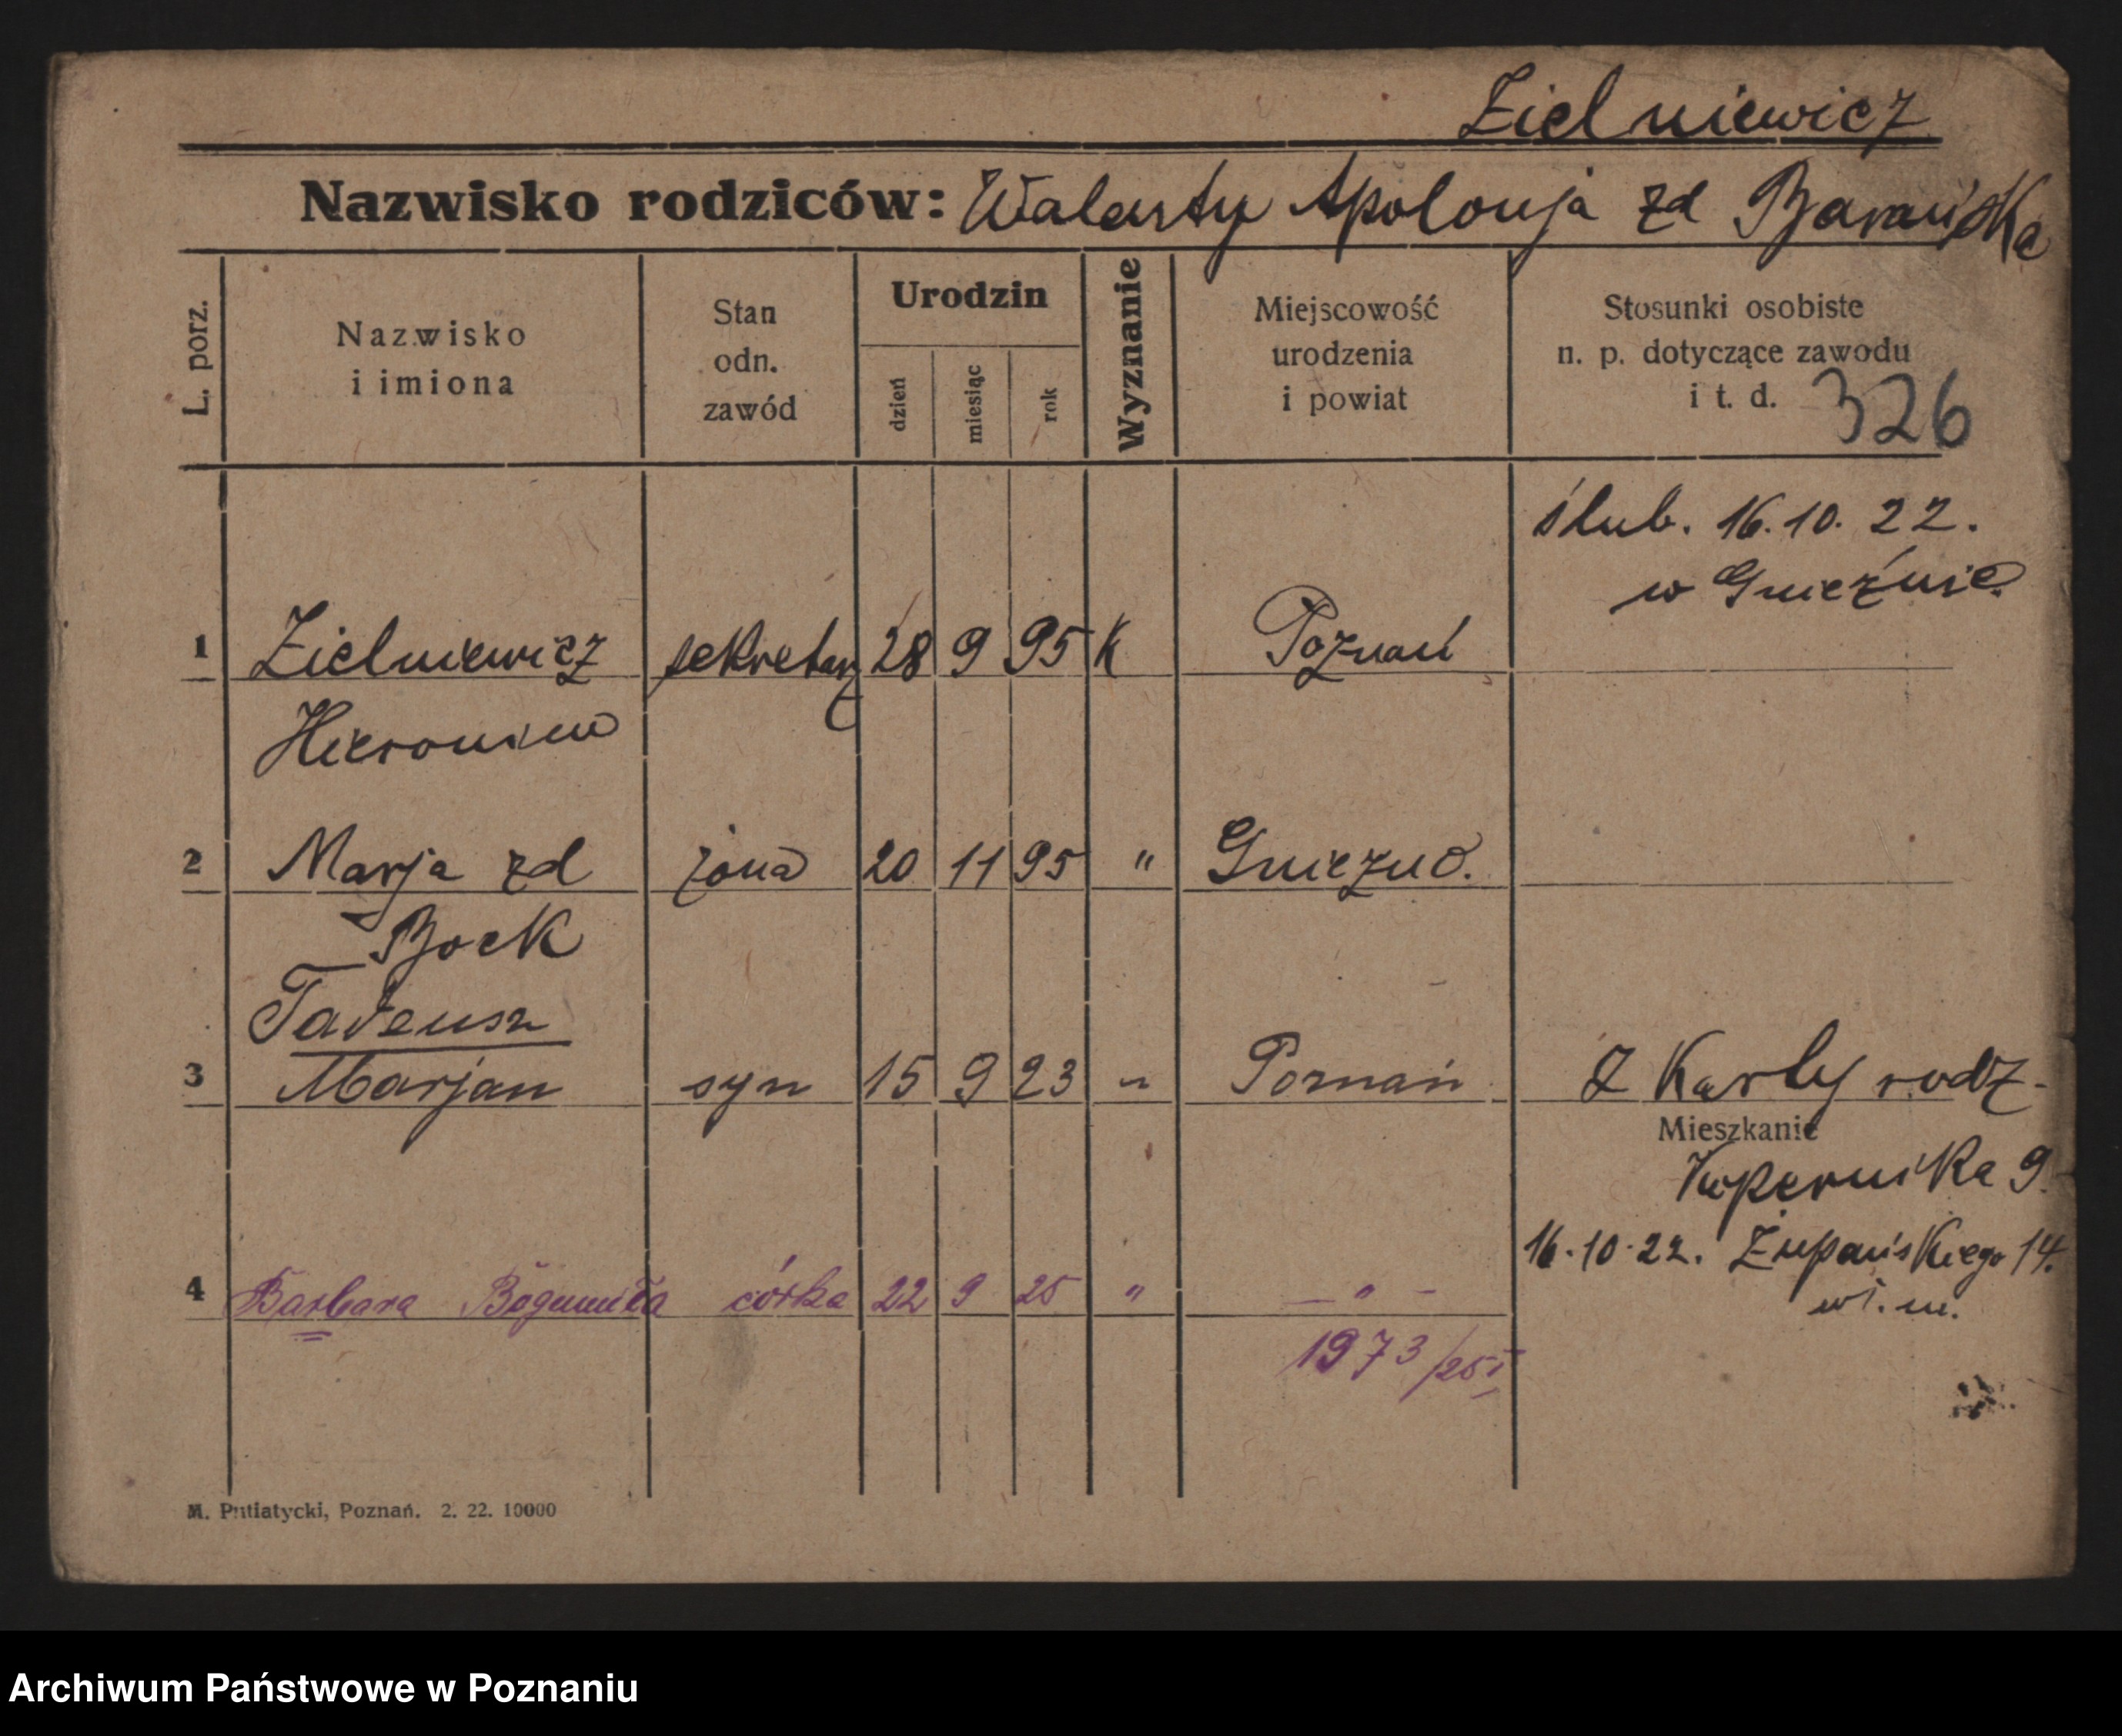 Zielniewicz
Nazwisko rodziców: Walenty Apolonja zd Barańska
L. porz.
Nazwisko
i imiona
Stan
odn.
zawód
Urodzin
dzień
miesiąc
rok
Wyznanie
Miejscowość
urodzenia
i powiat
Stosunki osobiste
n. p. dotyczące zawodu
i t. d. 326
ślub. 16.10. 22.
w Gnieźnie
1 Zielniewicz sekretarz 28 9 95 K Poznań
Hieronim
2 Marja zd żona 20 11 95 " Gniezno.
Bock
Tadeusz
3 Marjan syn 15 9 23 " Poznań Z Karty rodz.
Mieszkanie
Kopernika 9.
16.10.22. Żupańskiego 14.
4 Barbara Bogumiła córka 22 9 25 " — " —
1973/25
M. Putiatycki, Poznań. 2. 22. 10000
Archiwum Państwowe w Poznaniu